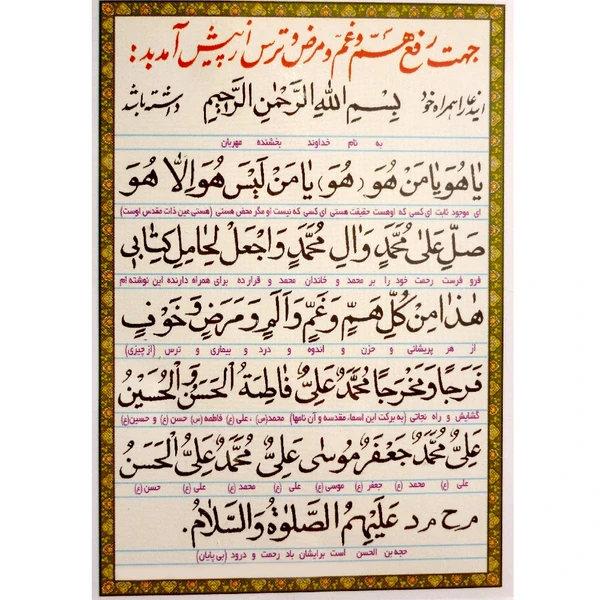 جهت رفع هم و غم و مرض و ترس از پیش آمد بد:
این دعا را همراه خود بِسْمِ اللهِ الرَّحْمٰنِ الرَّحیمِ داشته باشد
به نام خداوند بخشنده مهربان
یا هُوَ یا مَنْ هُوَ (هُوَ) یا مَنْ لَیْسَ هُوَ اِلّا هُوَ
ای موجود ثابت ای کسی که اوهست حقیقت هستی ای کسی که نیست او مگر محض هستی (هستی عین ذات مقدس اوست)
صَلِّ عَلیٰ مُحَمَّدٍ وَ الِ مُحَمَّدٍ وَ اجْعَلْ لِحامِلِ کِتابی
فرو فرست رحمت خود را بر محمد و خاندان محمد و قرار ده برای همراه دارنده این نوشته ام
هٰذا مِنْ کُلِّ هَمٍّ وَ غَمٍّ وَ اَلَمٍ وَ مَرَضٍ وَ خَوْفٍ
از هر پریشانی و حزن و اندوه و درد و بیماری و ترس (از چیزی)
فَرَجًا وَ مَخْرَجًا مُحَمَّدٌ عَلِیٌّ فاطِمَةُ الْحَسَنُ وَ الْحُسَیْنُ
گشایش و راه نجاتی (به برکت این اسماء مقدسه و آن نامها) محمد(ص) ،علی (ع) فاطمه (س) حسن (ع) و حسین(ع)
عَلِیٌّ مُحَمَّدٌ جَعْفَرٌ مُوسیٰ عَلِیٌّ مُحَمَّدٌ عَلِیٌّ الْحَسَنُ
علی (ع) محمد (ع) جعفر (ع) موسی (ع) علی (ع) محمد (ع) علی (ع) حسن (ع)
م ح م د عَلَیْهِمُ الصَّلوٰةُ وَ السَّلامُ.
حجه بن الحسن است برایشان باد رحمت و درود (بی پایان)